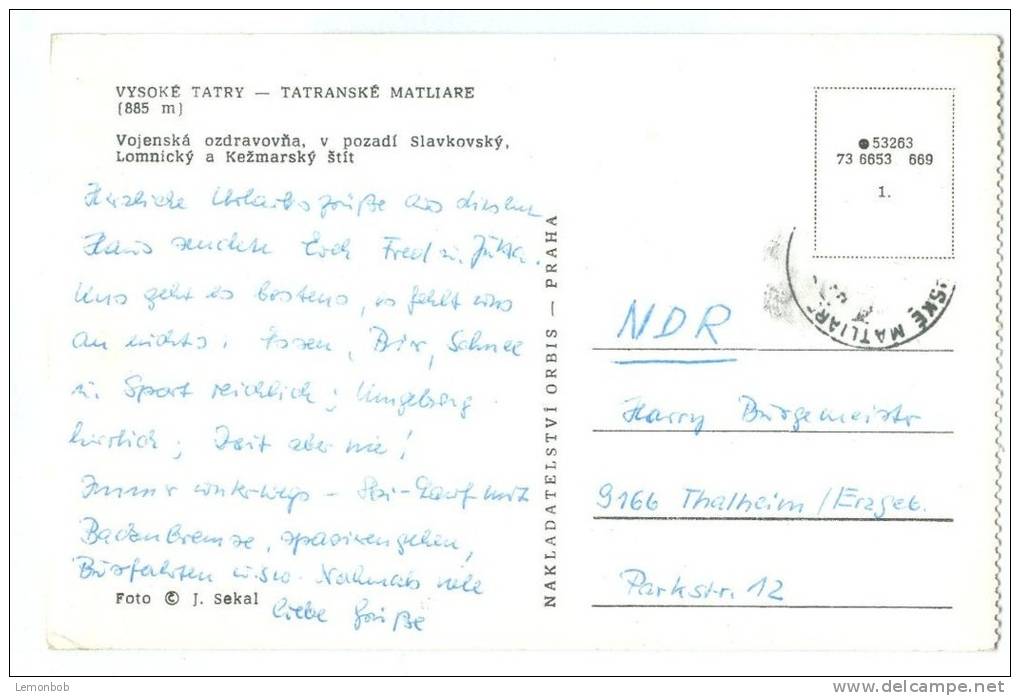 VYSOKÉ TATRY — TATRANSKÉ MATLIARE
(885 m)
Vojenská ozdravovňa, v pozadí Slavkovský,
Lomnický a Kežmarský štít
Herzliche Urlaubsgrüße aus diesem
Haus senden Euch Fred u.
Uns geht es bestens, es fehlt uns
an nichts. Essen, Bier, Schnee
u. Sport reichlich; Umgebung
herrlich; Zeit aber nie!
Immer unterwegs – Ski-Lauf mit
Backenbremse, spazierengehen,
Busfahrten usw. Nochmals viele
liebe Grüße
Foto © J. Sekal
NAKLADATELSTVÍ ORBIS — PRAHA
53263
73 6653 669
1.
SKÉ MATLIAR
NDR
Harry Bürgemeister
9166 Thalheim/Erzgeb.
Parkstr. 12
Lemonbob
delcampe.net